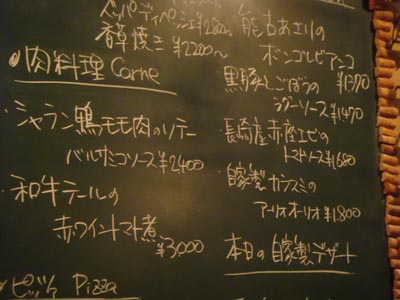 香草焼き ¥2200〜
●肉料理 Carne
・シャラン鴨モモ肉のソテー
バルサミコソース ¥2,400
・和牛テールの
赤ワイントマト煮
¥3,000
・ピッツァ Pizza
能古あさりの
ボンゴレビアンコ
¥1370
黒豚とごぼうの
ラグーソース ¥1470
・長崎産赤座エビの
トマトソース ¥1,680
・自家製カラスミの
アーリオ・オーリオ ¥1,800
本日の自家製デザート